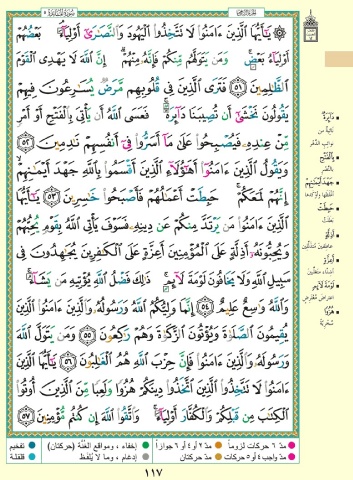 سُورَةُ المَائِدَة ٥
الجزء السادس
۞ يَٰٓأَيُّهَا ٱلَّذِينَ ءَامَنُوا۟ لَا تَتَّخِذُوا۟ ٱلْيَهُودَ وَٱلنَّصَٰرَىٰٓ أَوْلِيَآءَ ۘ بَعْضُهُمْ
أَوْلِيَآءُ بَعْضٍ ۚ وَمَن يَتَوَلَّهُم مِّنكُمْ فَإِنَّهُۥ مِنْهُمْ ۗ إِنَّ ٱللَّهَ لَا يَهْدِى ٱلْقَوْمَ
ٱلظَّٰلِمِينَ ٥١ فَتَرَى ٱلَّذِينَ فِى قُلُوبِهِم مَّرَضٌ يُسَٰرِعُونَ فِيهِمْ
يَقُولُونَ نَخْشَىٰٓ أَن تُصِيبَنَا دَآئِرَةٌ ۚ فَعَسَى ٱللَّهُ أَن يَأْتِىَ بِٱلْفَتْحِ أَوْ أَمْرٍ
مِّنْ عِندِهِۦ فَيُصْبِحُوا۟ عَلَىٰ مَآ أَسَرُّوا۟ فِىٓ أَنفُسِهِمْ نَٰدِمِينَ ٥٢
وَيَقُولُ ٱلَّذِينَ ءَامَنُوٓا۟ أَهَٰٓؤُلَآءِ ٱلَّذِينَ أَقْسَمُوا۟ بِٱللَّهِ جَهْدَ أَيْمَٰنِهِمْ ۙ
إِنَّهُمْ لَمَعَكُمْ ۚ حَبِطَتْ أَعْمَٰلُهُمْ فَأَصْبَحُوا۟ خَٰسِرِينَ ٥٣ يَٰٓأَيُّهَا
ٱلَّذِينَ ءَامَنُوا۟ مَن يَرْتَدَّ مِنكُمْ عَن دِينِهِۦ فَسَوْفَ يَأْتِى ٱللَّهُ بِقَوْمٍ يُحِبُّهُمْ
وَيُحِبُّونَهُۥٓ أَذِلَّةٍ عَلَى ٱلْمُؤْمِنِينَ أَعِزَّةٍ عَلَى ٱلْكَٰفِرِينَ يُجَٰهِدُونَ فِى
سَبِيلِ ٱللَّهِ وَلَا يَخَافُونَ لَوْمَةَ لَآئِمٍ ۚ ذَٰلِكَ فَضْلُ ٱللَّهِ يُؤْتِيهِ مَن يَشَآءُ ۚ
وَٱللَّهُ وَٰسِعٌ عَلِيمٌ ٥٤ إِنَّمَا وَلِيُّكُمُ ٱللَّهُ وَرَسُولُهُۥ وَٱلَّذِينَ ءَامَنُوا۟ ٱلَّذِينَ
يُقِيمُونَ ٱلصَّلَوٰةَ وَيُؤْتُونَ ٱلزَّكَوٰةَ وَهُمْ رَٰكِعُونَ ٥٥ وَمَن يَتَوَلَّ ٱللَّهَ
وَرَسُولَهُۥ وَٱلَّذِينَ ءَامَنُوا۟ فَإِنَّ حِزْبَ ٱللَّهِ هُمُ ٱلْغَٰلِبُونَ ٥٦ يَٰٓأَيُّهَا ٱلَّذِينَ
ءَامَنُوا۟ لَا تَتَّخِذُوا۟ ٱلَّذِينَ ٱتَّخَذُوا۟ دِينَكُمْ هُزُوًا وَلَعِبًا مِّنَ ٱلَّذِينَ أُوتُوا۟
ٱلْكِتَٰبَ مِن قَبْلِكُمْ وَٱلْكُفَّارَ أَوْلِيَآءَ ۚ وَٱتَّقُوا۟ ٱللَّهَ إِن كُنتُم مُّؤْمِنِينَ ٥٧
دَآئِرَةٌ
نائبة من
نوائب الدّهر
بِالْفَتْحِ
بالنّصر
جَهْدَ أَيْمَانِهِمْ
أغلظها وأوكدها
حَبِطَتْ
بطلت
أَذِلَّةٍ
عاطفين متذلّلين
أَعِزَّةٍ
أشدّاء متغلّبين
لَوْمَةَ لَآئِمٍ
اعتراض معترض
هُزُوًا
سُخريّة
مدّ ٦ حركات لزوماً
مدّ ٢ أو ٤ أو ٦ جوازاً
إخفاء، ومواقع الغُنَّة (حركتان)
تفخيم
مدّ واجب ٤ أو ٥ حركات
مدّ حركتان
إدغام، وما لا يُلفَظ
قلقلة
١١٧